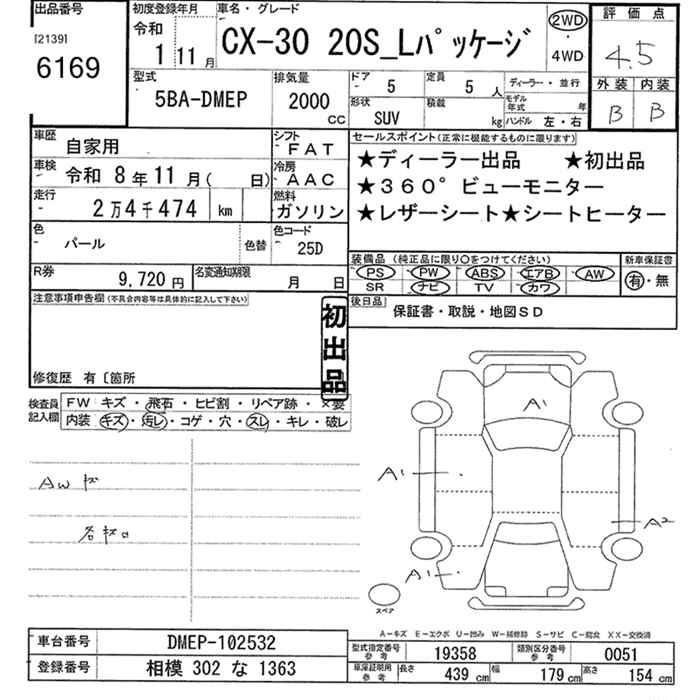 出品番号
[2139]
6169
初度登録年月
令和
1 11月
車名・グレード
CX-30 20S_Lパッケージ
2WD
・
4WD
評価点
4.5
外装 内装
B B
型式
5BA-DMEP
排気量
2000
CC
ドア
5
定員
5 人
ディーラー・並行
形状
SUV
積載
kg
モデル年式 年
ハンドル 左・右
車歴
自家用
シフト
FAT
車検
令和 8年11月( 日)
冷房
AAC
走行
2万4千474 km
燃料
ガソリン
色
パール
色替
色コード
25D
R券
9,720円
名変通知期限
月 日
セールスポイント(正常に機能するものに限ります)
★ディーラー出品 ★初出品
★360°ビューモニター
★レザーシート★シートヒーター
装備品 (純正品に限り○をつけてください)
PS PW ABS エアB AW
SR ナビ TV カワ
新車保証書
有・無
後日品
保証書・取説・地図SD
注意事項申告欄(不具合内容等は具体的に記入して下さい)
初出品
修復歴 有〔箇所
検査員記入欄
FW キズ・飛石・ヒビ割・リペア跡・×要
内装 キズ・汚レ・コゲ・穴・スレ・キレ・破レ
AWキズ
A1
A1
A2
A1
スペア
A-キズ E-エクボ U-凹み W-補修跡 S-サビ C-腐食 XX-交換済
車台番号
DMEP-102532
登録番号
相模 302 な 1363
型式指定番号
参考
19358
類別区分番号
参考
0051
車庫証明用
参考
長さ
439 cm
幅
179 cm
高さ
154 cm